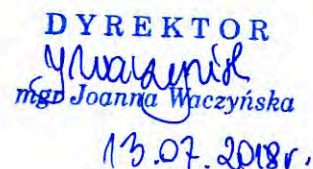 DYREKTOR
mgr Joanna Waczyńska
13.07.2018r.